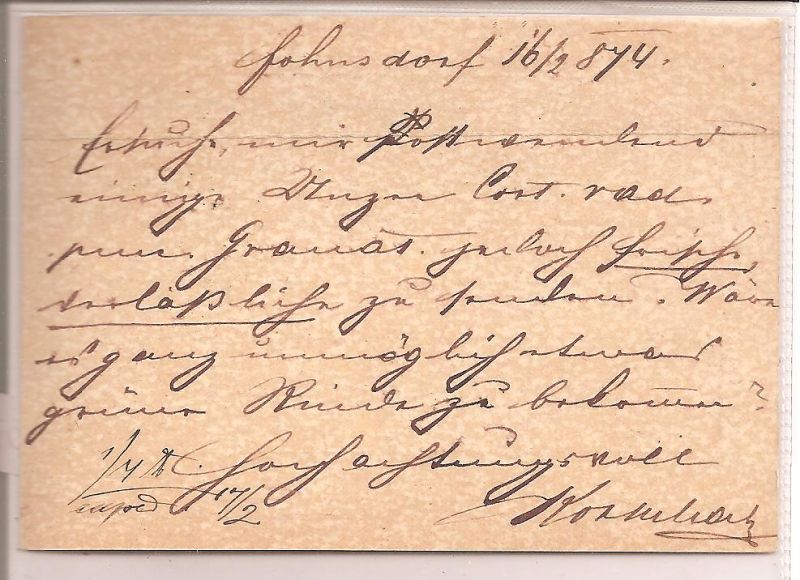 Johnsdorf 16/2 874.
Ersuche, mir Postwendend
einige Unzen Cort. rad.
pun. Granat. jedoch frische,
verlaßliche zu senden. Wäre
es ganz unmöglich etwas
grüne Rinde zu bekommen?
Hochachtungsvoll
exped 17/2